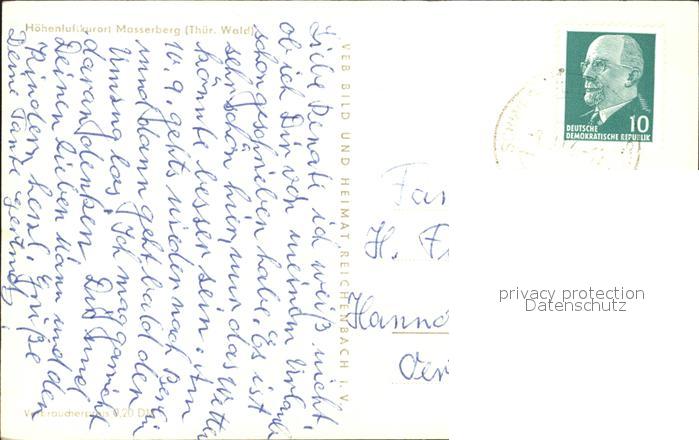 Höhenluftkurort Masserberg (Thür. Wald)
Liebe Renate ich weiß nicht
ob ich Dir von meinem Urlaub
schon geschrieben habe. Es ist
sehr schön hier nur das Wetter
könnte besser sein. Am
10. 9. gehts wieder nach Berlin
und dann geht bald der
Umzug los. Ich mag gar nicht
daran denken. Dir und
Deinen lieben Mann und den
Kindern herzl. Grüße
Deine Tante Gertrud
Verbraucherpreis 0,20 DM
VEB BILD UND HEIMAT REICHENBACH I. V.
10
DEUTSCHE
DEMOKRATISCHE REPUBLIK
Fa
H. F
Hanno
privacy protection
Datenschutz